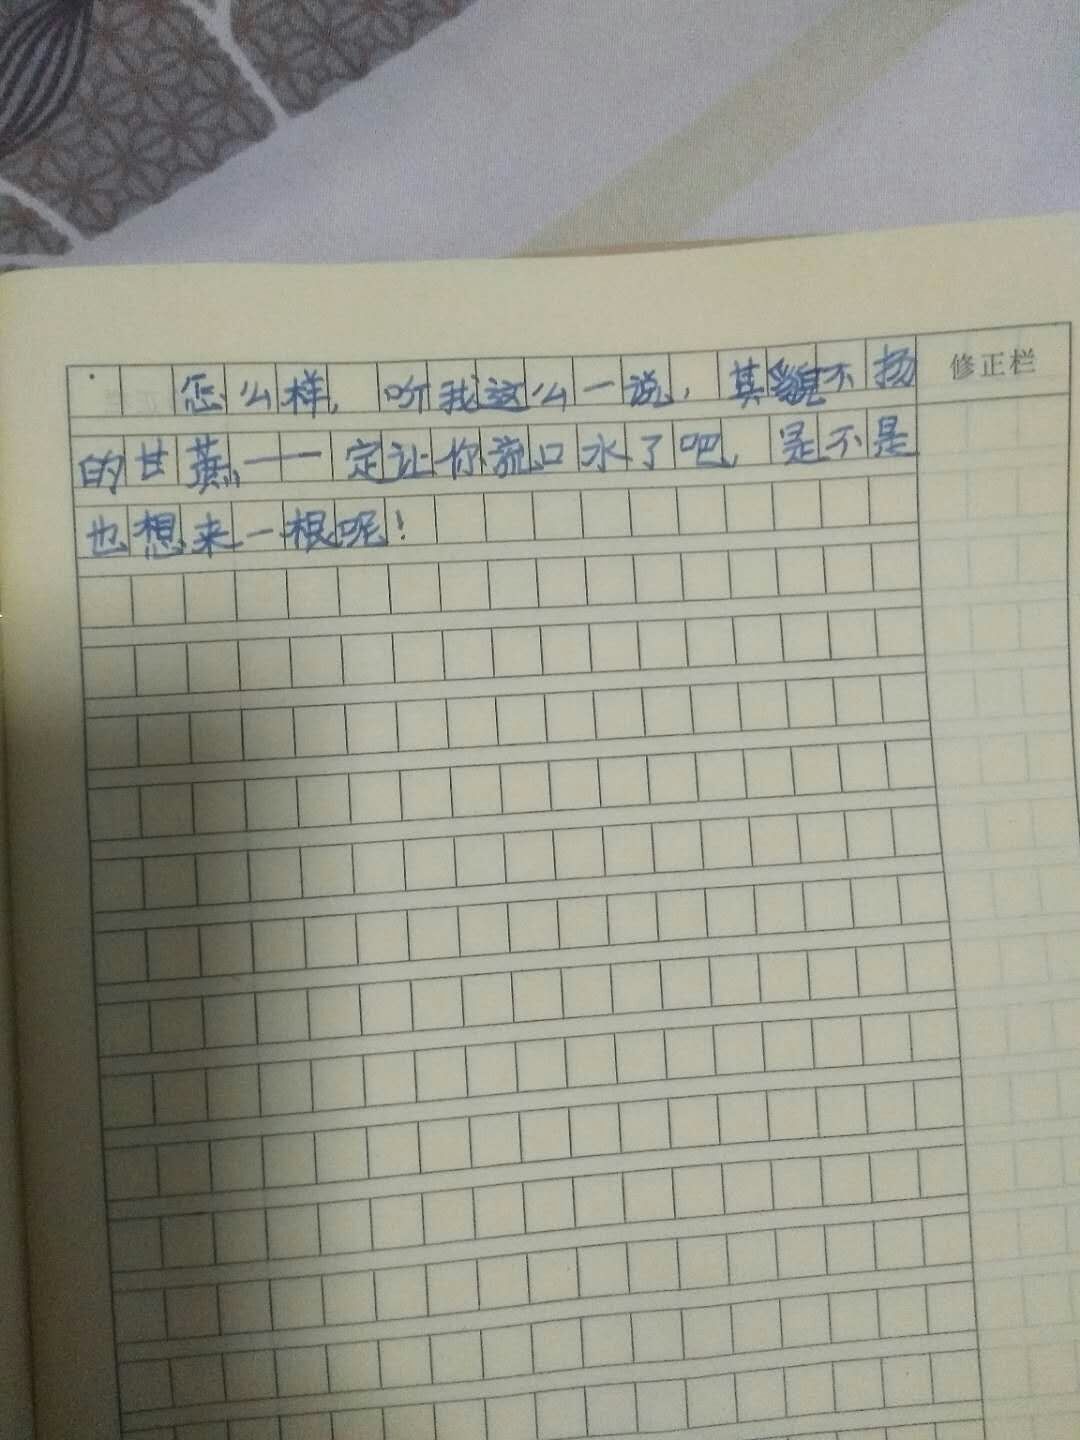 修正栏
怎么样，听我这么一说，其貌不扬
的甘蔗，一定让你流口水了吧，是不是
也想来一根呢！